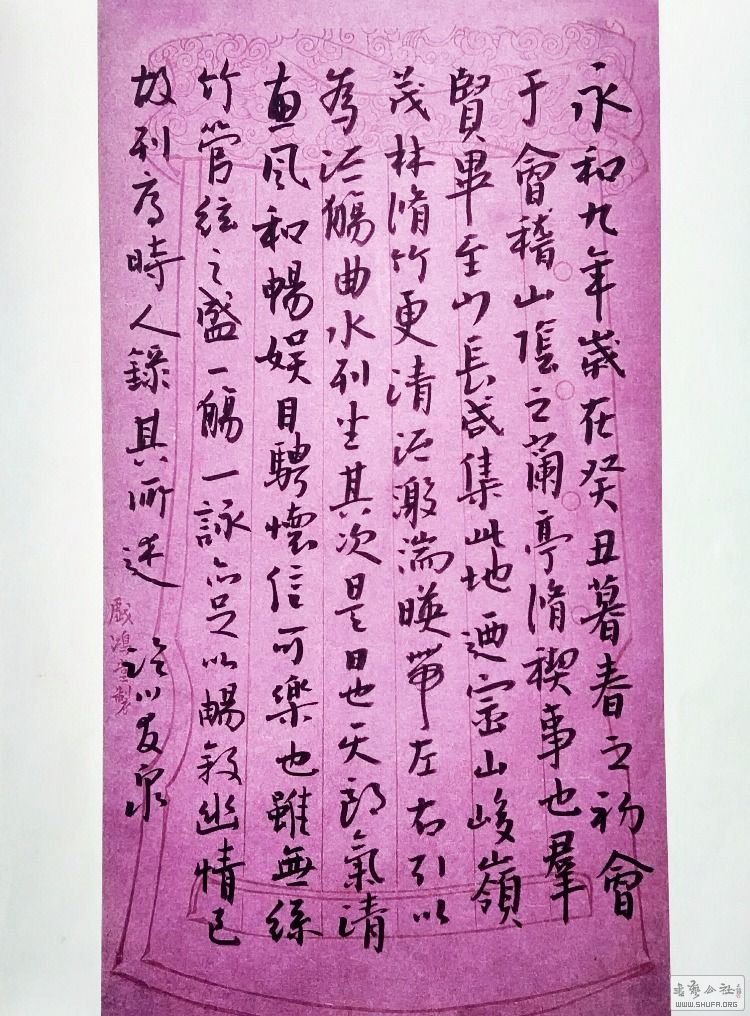 永和九年歲在癸丑暮春之初會
于會稽山陰之蘭亭脩禊事也羣
賢畢至少長咸集此地迺崇山峻嶺
茂林脩竹更清流激湍暎帶左右引以
為流觴曲水列坐其次是日也天朗氣清
惠風和暢娛目騁懷信可樂也雖無絲
竹管絃之盛一觴一詠亦足以暢敘幽情已
故列序時人錄其所述
戲鴻堂製
書藝公社
WWW.SHUFA.ORG